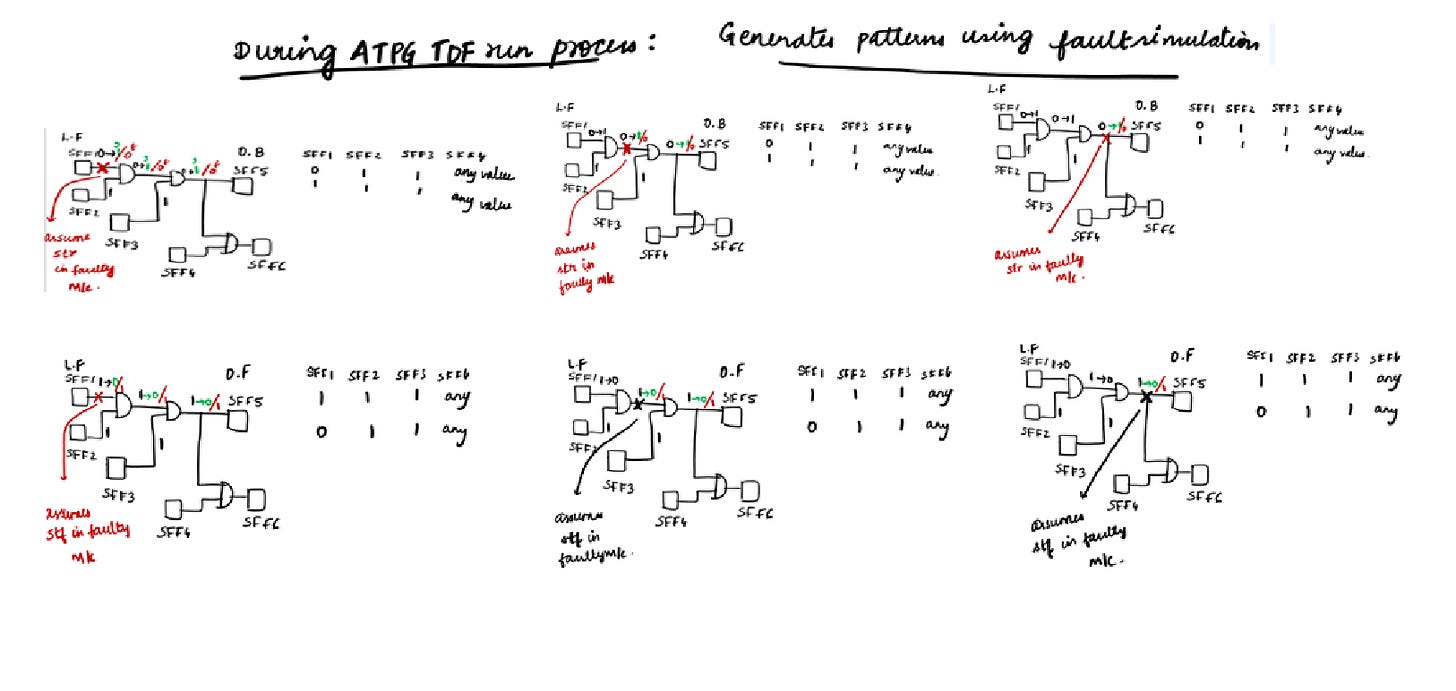 During ATPG TDF run process :
Generates patterns using faultsimulation
L.F
SFF1 0→1/0
0→1/0
0→1/0
O.B
SFF5
1
SFF2
1
SFF3
SFF4
SFF6
assume
str
in faulty
m/c.
SFF1 SFF2 SFF3 SFF4
0 1 1 any value
1 1 1 any value
L.F
SFF1
0→1
0→1/0
0→1/0
O.B
SFF5
1
SFF2
1
SFF3
SFF4
SFF6
assumes
str in
faulty m/c
SFF1 SFF2 SFF3 SFF4
0 1 1 any value
1 1 1 any value.
L.F
SFF1
0→1
0→1
0→1/0
O.B
SFF5
1
SFF2
1
SFF3
SFF4
SFF6
assumes
str in faulty
m/c.
SFF1 SFF2 SFF3 SFF4
0 1 1 any value
1 1 1 any value.
L.F
SFF1 1→0/1
1→0/1
1→0/1
O.F
SFF5
1
SFF2
1
SFF3
SFF4
SFF6
assumes
stf in faulty
m/c
SFF1 SFF2 SFF3 SFF4
1 1 1 any
0 1 1 any
L.F
SFF1 1→0
1→0/1
1→0/1
O.F
SFF5
1
SFF2
1
SFF3
SFF4
SFF6
assumes
stf in
faulty m/c.
SFF1 SFF2 SFF3 SFF4
1 1 1 any
0 1 1 any
L.F
SFF1 1→0
1→0
1→0/1
O.F
SFF5
1
SFF2
1
SFF3
SFF4
SFF6
assumes
stf in faulty
m/c.
SFF1 SFF2 SFF3 SFF4
1 1 1 any
0 1 1 any